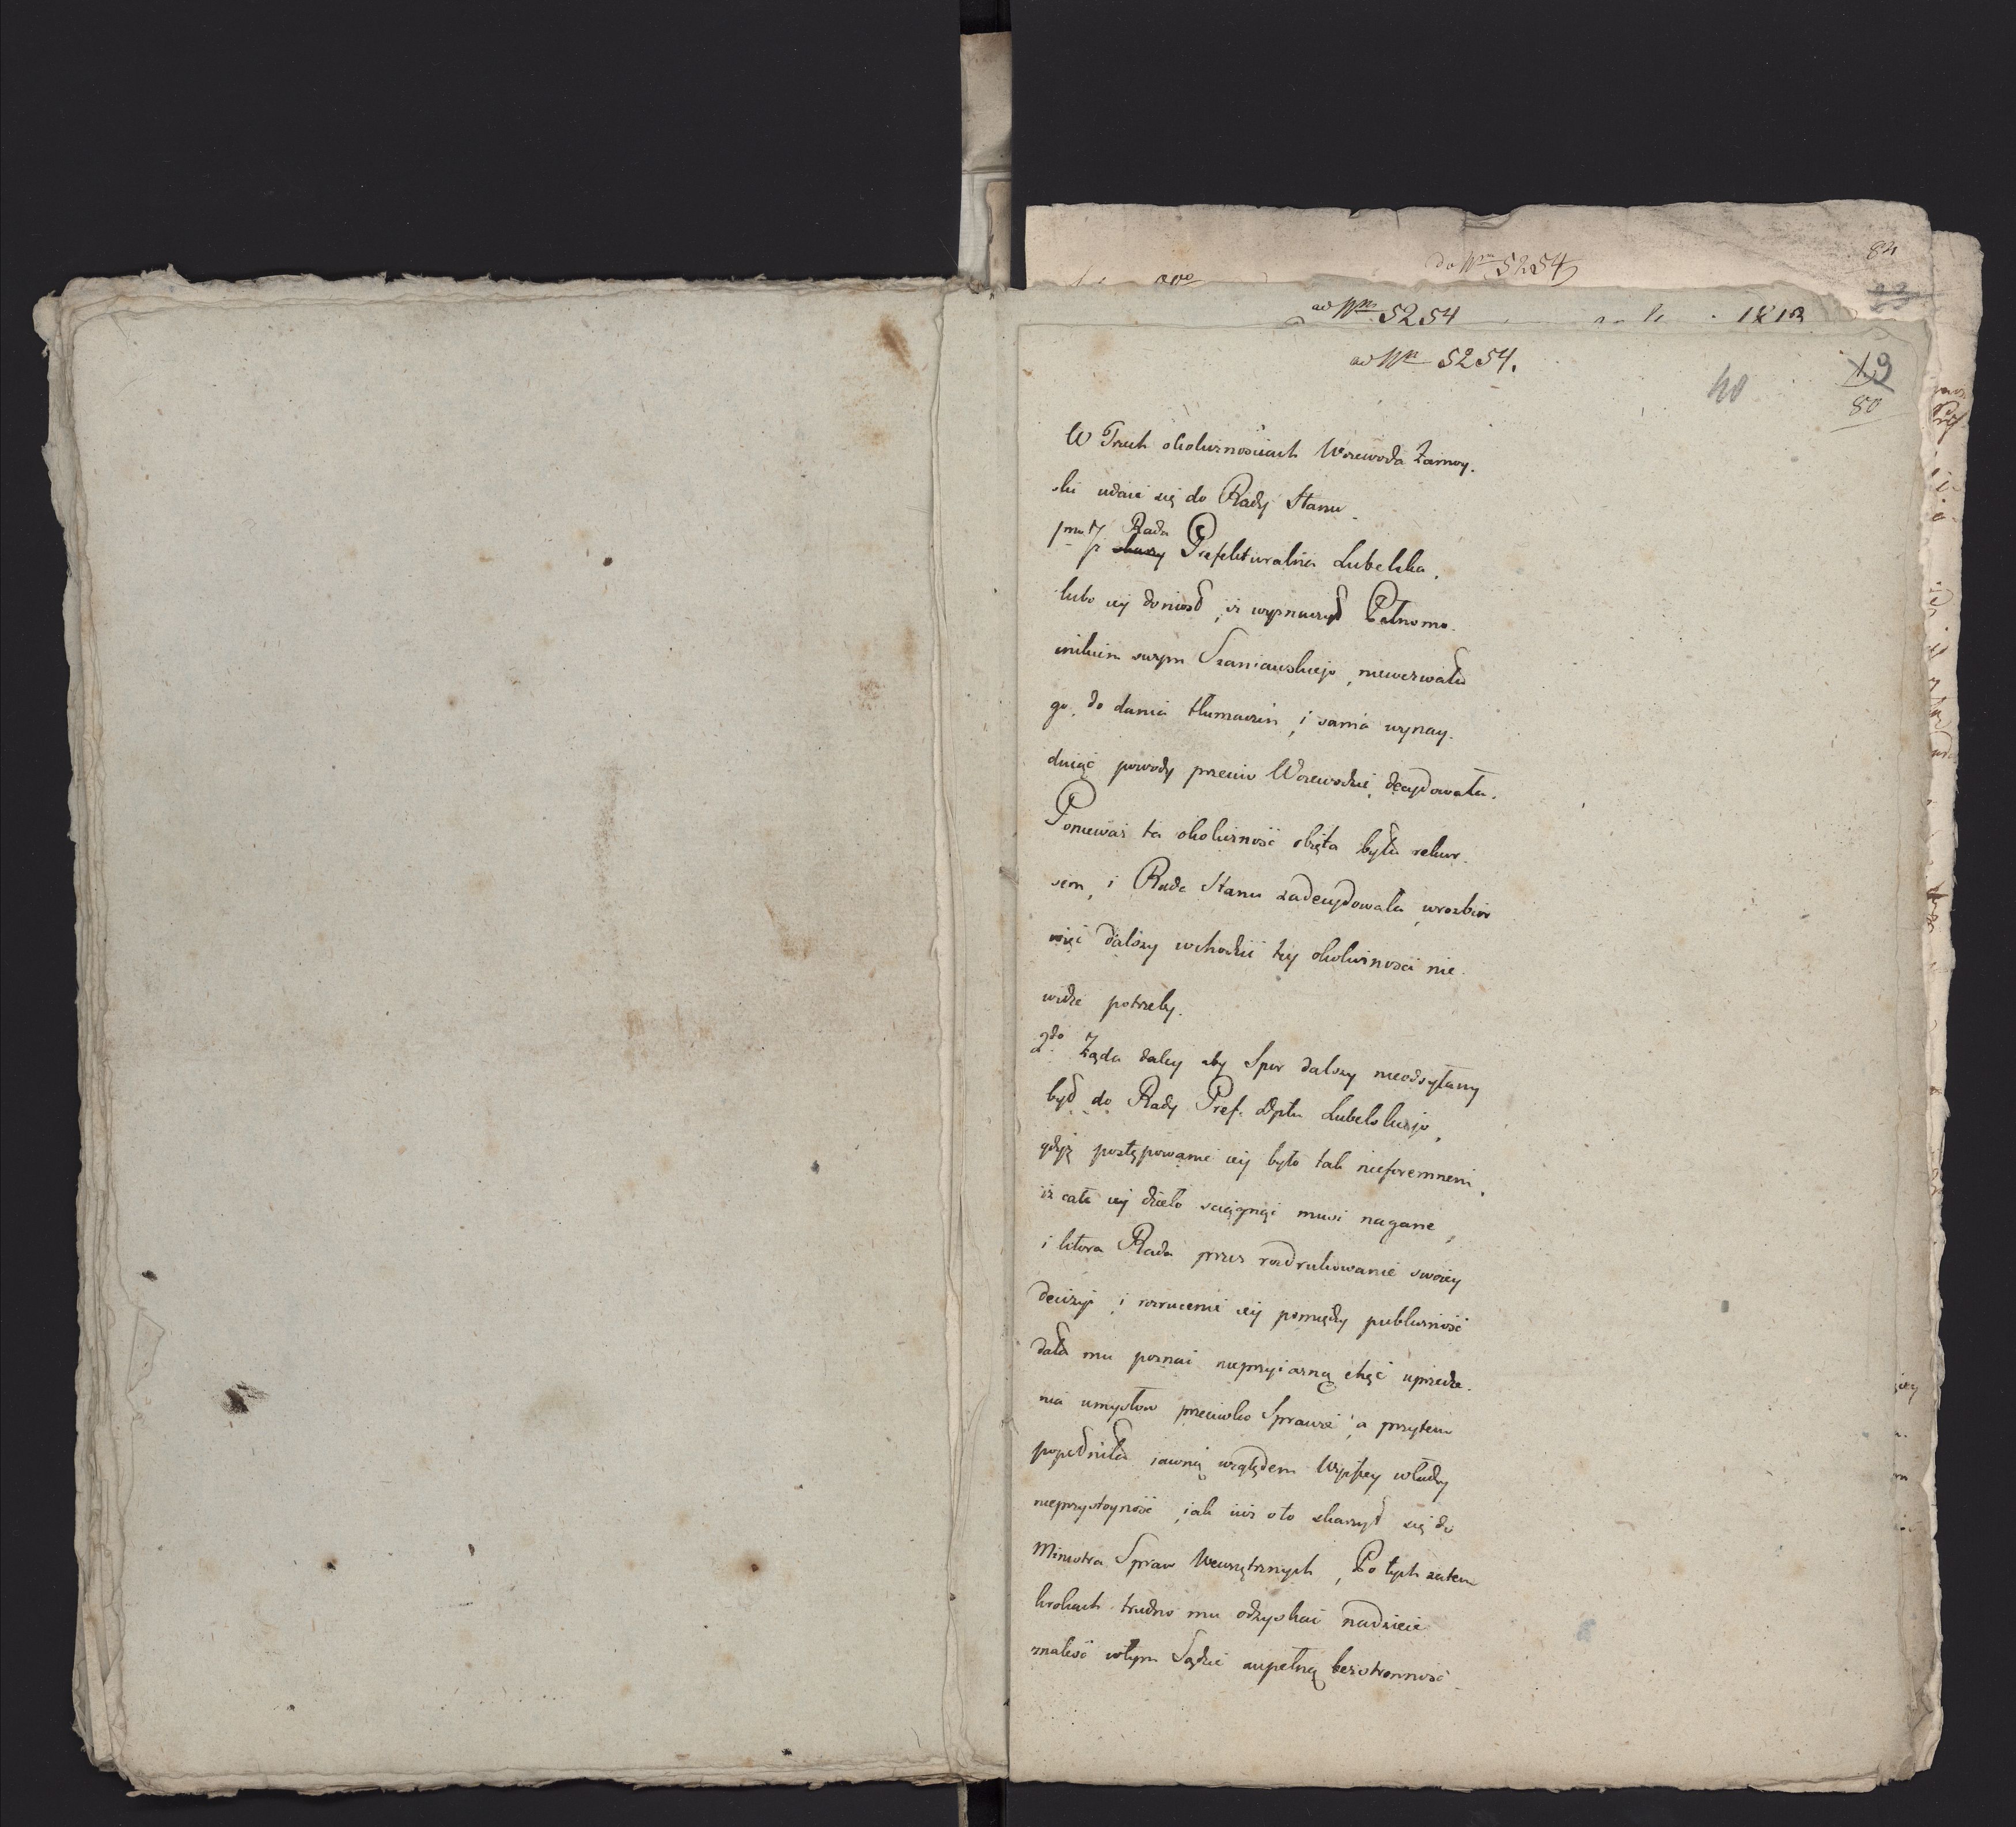 do Nrm 5254
84
23
ad Nrm 5254
1812
ad Nrm 5254.
40
19
80
W Trzech okolicznościach Woiewoda Zamoy.
ski udaie się do Rady Stanu
1mo iż skarży Rada Prefekturalna Lubelska,
lubo iey doniosł, iż wyznaczył Pełnomo.
cnikiem swym Szaniawskiego, niewezwała
go, do dania tłumaczeń, i sama wynay.
duiąc powody przeciw Woiewodzie, decydowała.
Ponieważ ta okoliczność obięta była rekur.
sem, i Rada Stanu zadecydowała, wrozbiór
więc dalszy wchodzić tey okoliczności nie
widzi potrzeby.
2do Żąda daley aby Spor dalszy nieodsyłany
był do Rady Pref. Dptu Lubelskiego,
gdyż postępowanie iey było tak nieforemnem,
iż całe iey dzieło sciągnąć musi naganę,
i ktora Rada przez rozdrukowanie swoiey
decizyi i rozrucenie iey pomiędzy publiczność
dała mu poznać nieprzyiazną chęć uprzedze.
nia umysłow przeciwko Sprawie, a przytem
popełniła iawną względem Wyższey władzy
nieprzystoyność, iak iuż oto skarzył się do
Ministra Spraw Wewnętrznych, Po tych zatem
krokach trudno mu odzyskać nadzieię
znaleść wtym Sądzie zupełną bezstronność